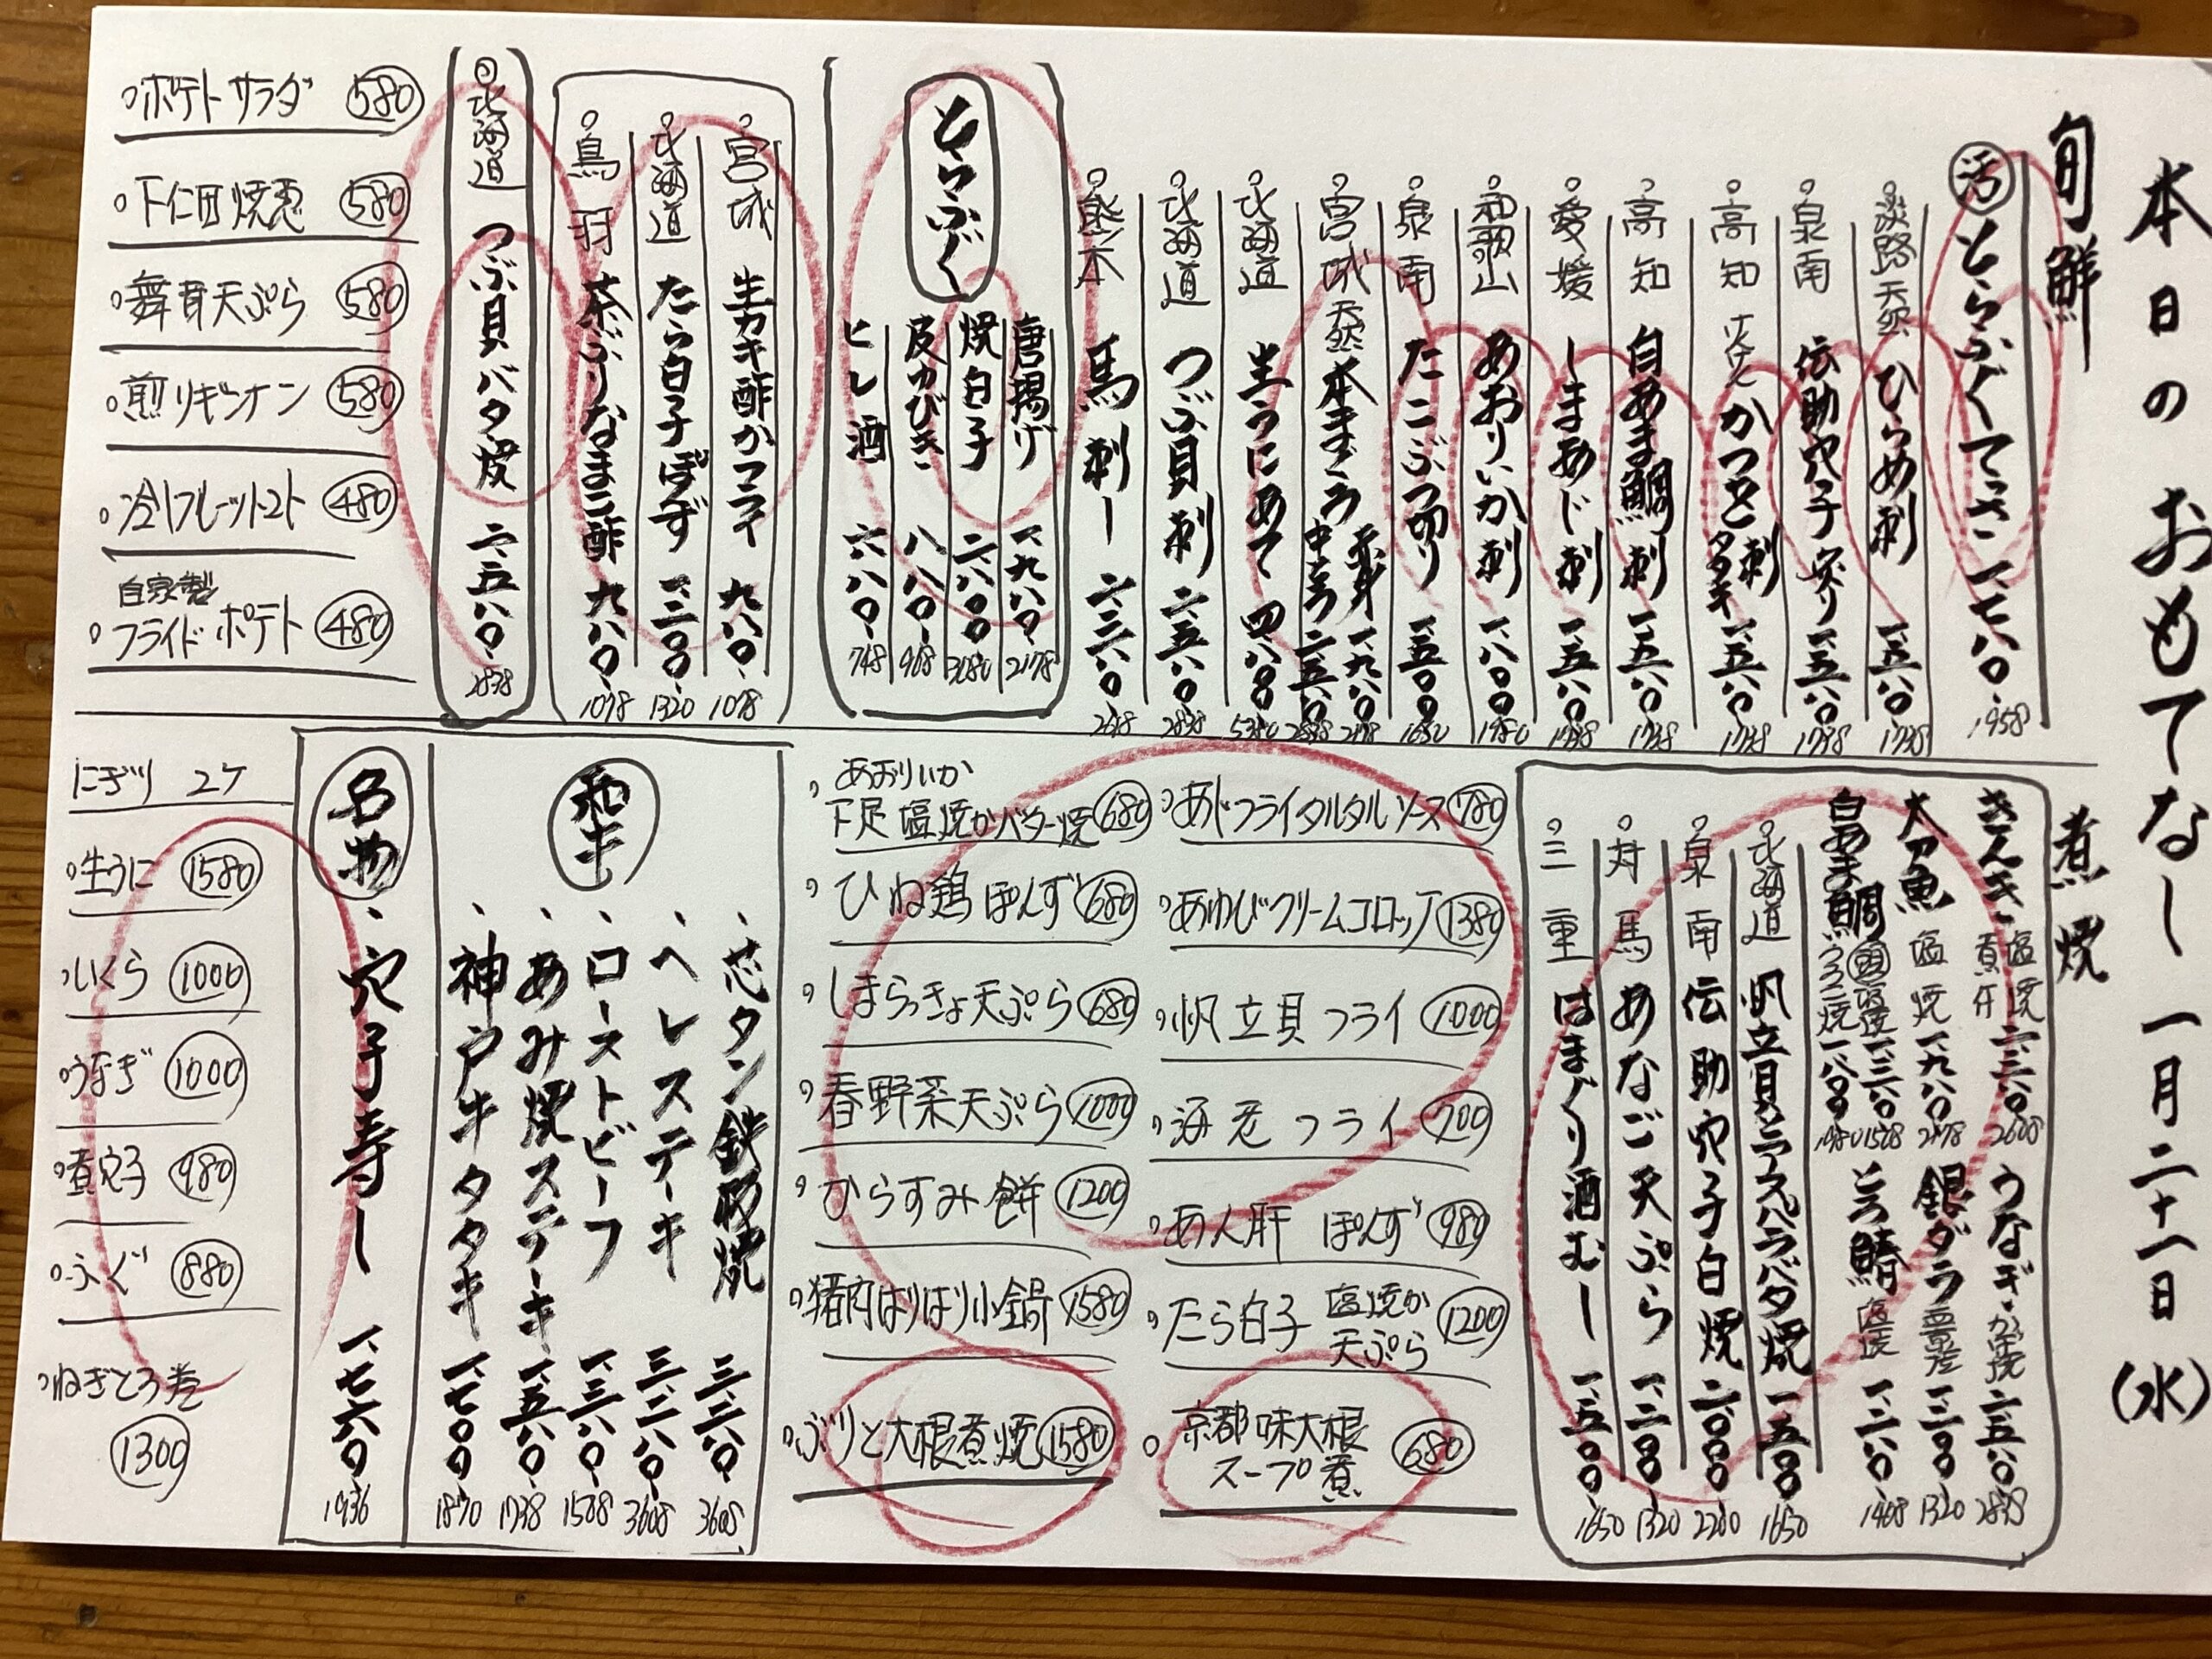 本日のおもてなし 一月二十一日(水)
旬鮮
活 とらふぐてっさ 一、七八〇 1958
淡路 天然 ひらめ刺 一、五八〇 1738
泉南 伝助穴子 炙り 一、五八〇 1738
高知 かつを 刺 タタキ 一、五八〇 1738
高知 白あま鯛刺 一、五八〇 1738
愛媛 しまあじ刺 一、五八〇 1738
和歌山 あおりいか刺 一、八〇〇 1980
泉南 たこぶつ切り 一、五〇〇 1650
宮城 天然 本まぐろ 赤身 一、九八〇 2178 中とろ 二、五八〇 2838
北海道 生うにあて 四、八〇〇 5280
北海道 つぶ貝刺 二、五八〇 2838
熊本 馬刺し
とらふぐ
唐揚げ 一、九八〇 2178
焼白子 二、八〇〇 3080
皮ゆびき 八八〇 968
ヒレ酒 六八〇 748
宮城 生カキ酢かフライ 九八〇 1078
北海道 たら白子ぽず 一、二〇〇 1320
鳥羽 茶ぶりなまこ酢 九八〇 1078
北海道 つぶ貝バタ焼 二、五八〇 2838
ポテトサラダ 580
下仁田焼葱 580
舞茸天ぷら 580
煎りギンナン 580
冷しフルーツトマト 480
自家製
フライドポテト 480
煮焼
きんき 塩焼 煮付
太刀魚 塩焼 一、九八〇 2178
白あま鯛 頭塩焼 一、三八〇 1518 うろこ焼 一、八〇〇 1980
うなぎ かば焼 二、五八〇 2838
銀ダラ 西京焼 一、二〇〇 1320
とろ鯖 塩焼 一、二八〇 1408
北海道 帆立貝とアスパラバタ焼 一、五〇〇 1650
泉南 伝助穴子白焼 二、〇〇〇 2200
対馬 あなご天ぷら 一、二〇〇 1320
三重 はまぐり酒むし 一、五〇〇 1650
あじフライタルタルソース 780
あわびクリームコロッケ 1380
帆立貝フライ 1000
海老フライ 700
あん肝 ぽんず 980
たら白子 塩焼か
天ぷら 1200
京都味大根
スープ煮 680
あおりいか
下足 塩焼かバター焼 680
ひね鶏ぽんず 680
しまらっきょ天ぷら 680
春野菜天ぷら 1000
からすみ餅 1200
猪肉はりはり小鍋 1580
ぶりと大根煮焼 1580
和牛
芯タン鉄板焼 三、二八〇 3608
ヘレステーキ 三、二八〇 3608
ローストビーフ
あみ焼ステーキ 一、五八〇 1738
神戸牛タタキ 一、七〇〇 1870
名物
穴子寿し 一、七六〇 1936
にぎり 2ケ
生うに 1580
いくら 1000
うなぎ 1000
煮穴子 980
ふぐ 880
ねぎとろ巻
1300